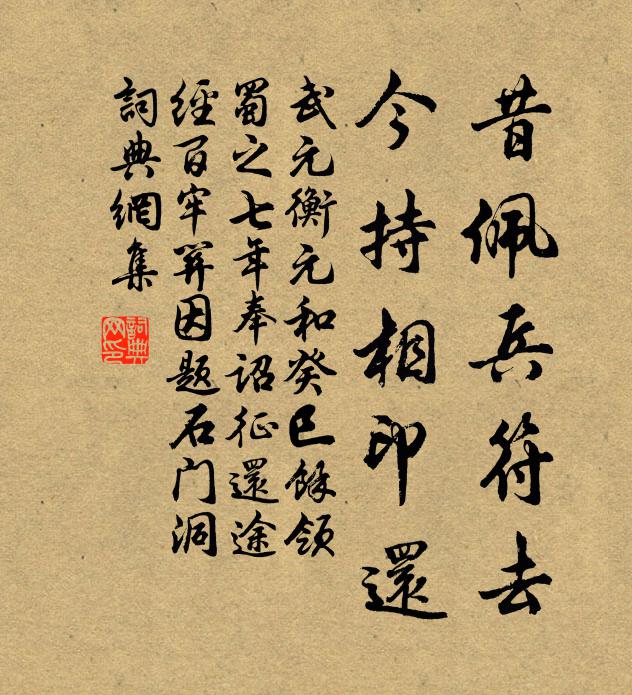 昔佩兵符去
今持相印還
武元衡元和癸巳餘領
蜀之七年奉詔征還途
經百牢關因題石门洞
詞典網集
詞典網印